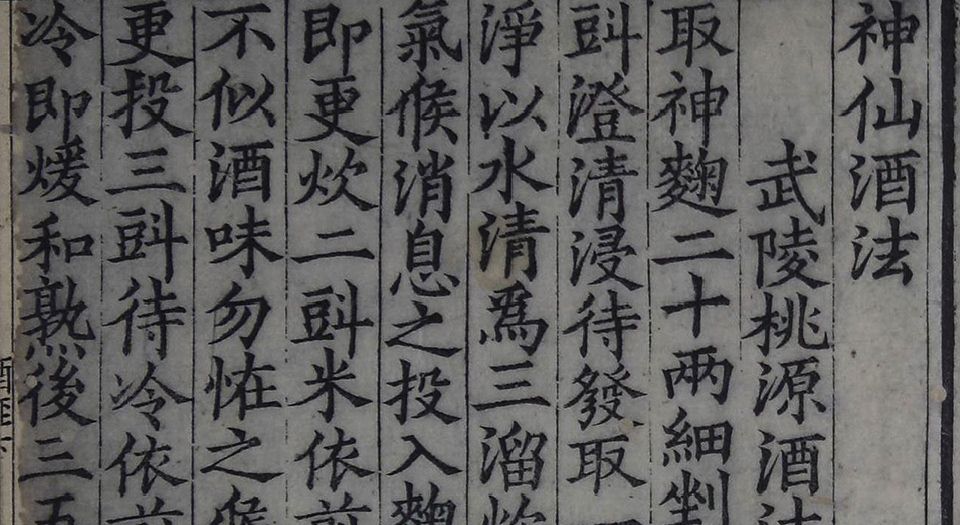 神仙酒法
武陵桃源酒法
取神麴二十兩細剉
㪷澄清浸待發取
淨以水清爲三溜炊
氣候消息之投入麴
即更炊二㪷米依前
不似酒味勿恠之候
更投三㪷待冷依前
冷即煖和熟後三五